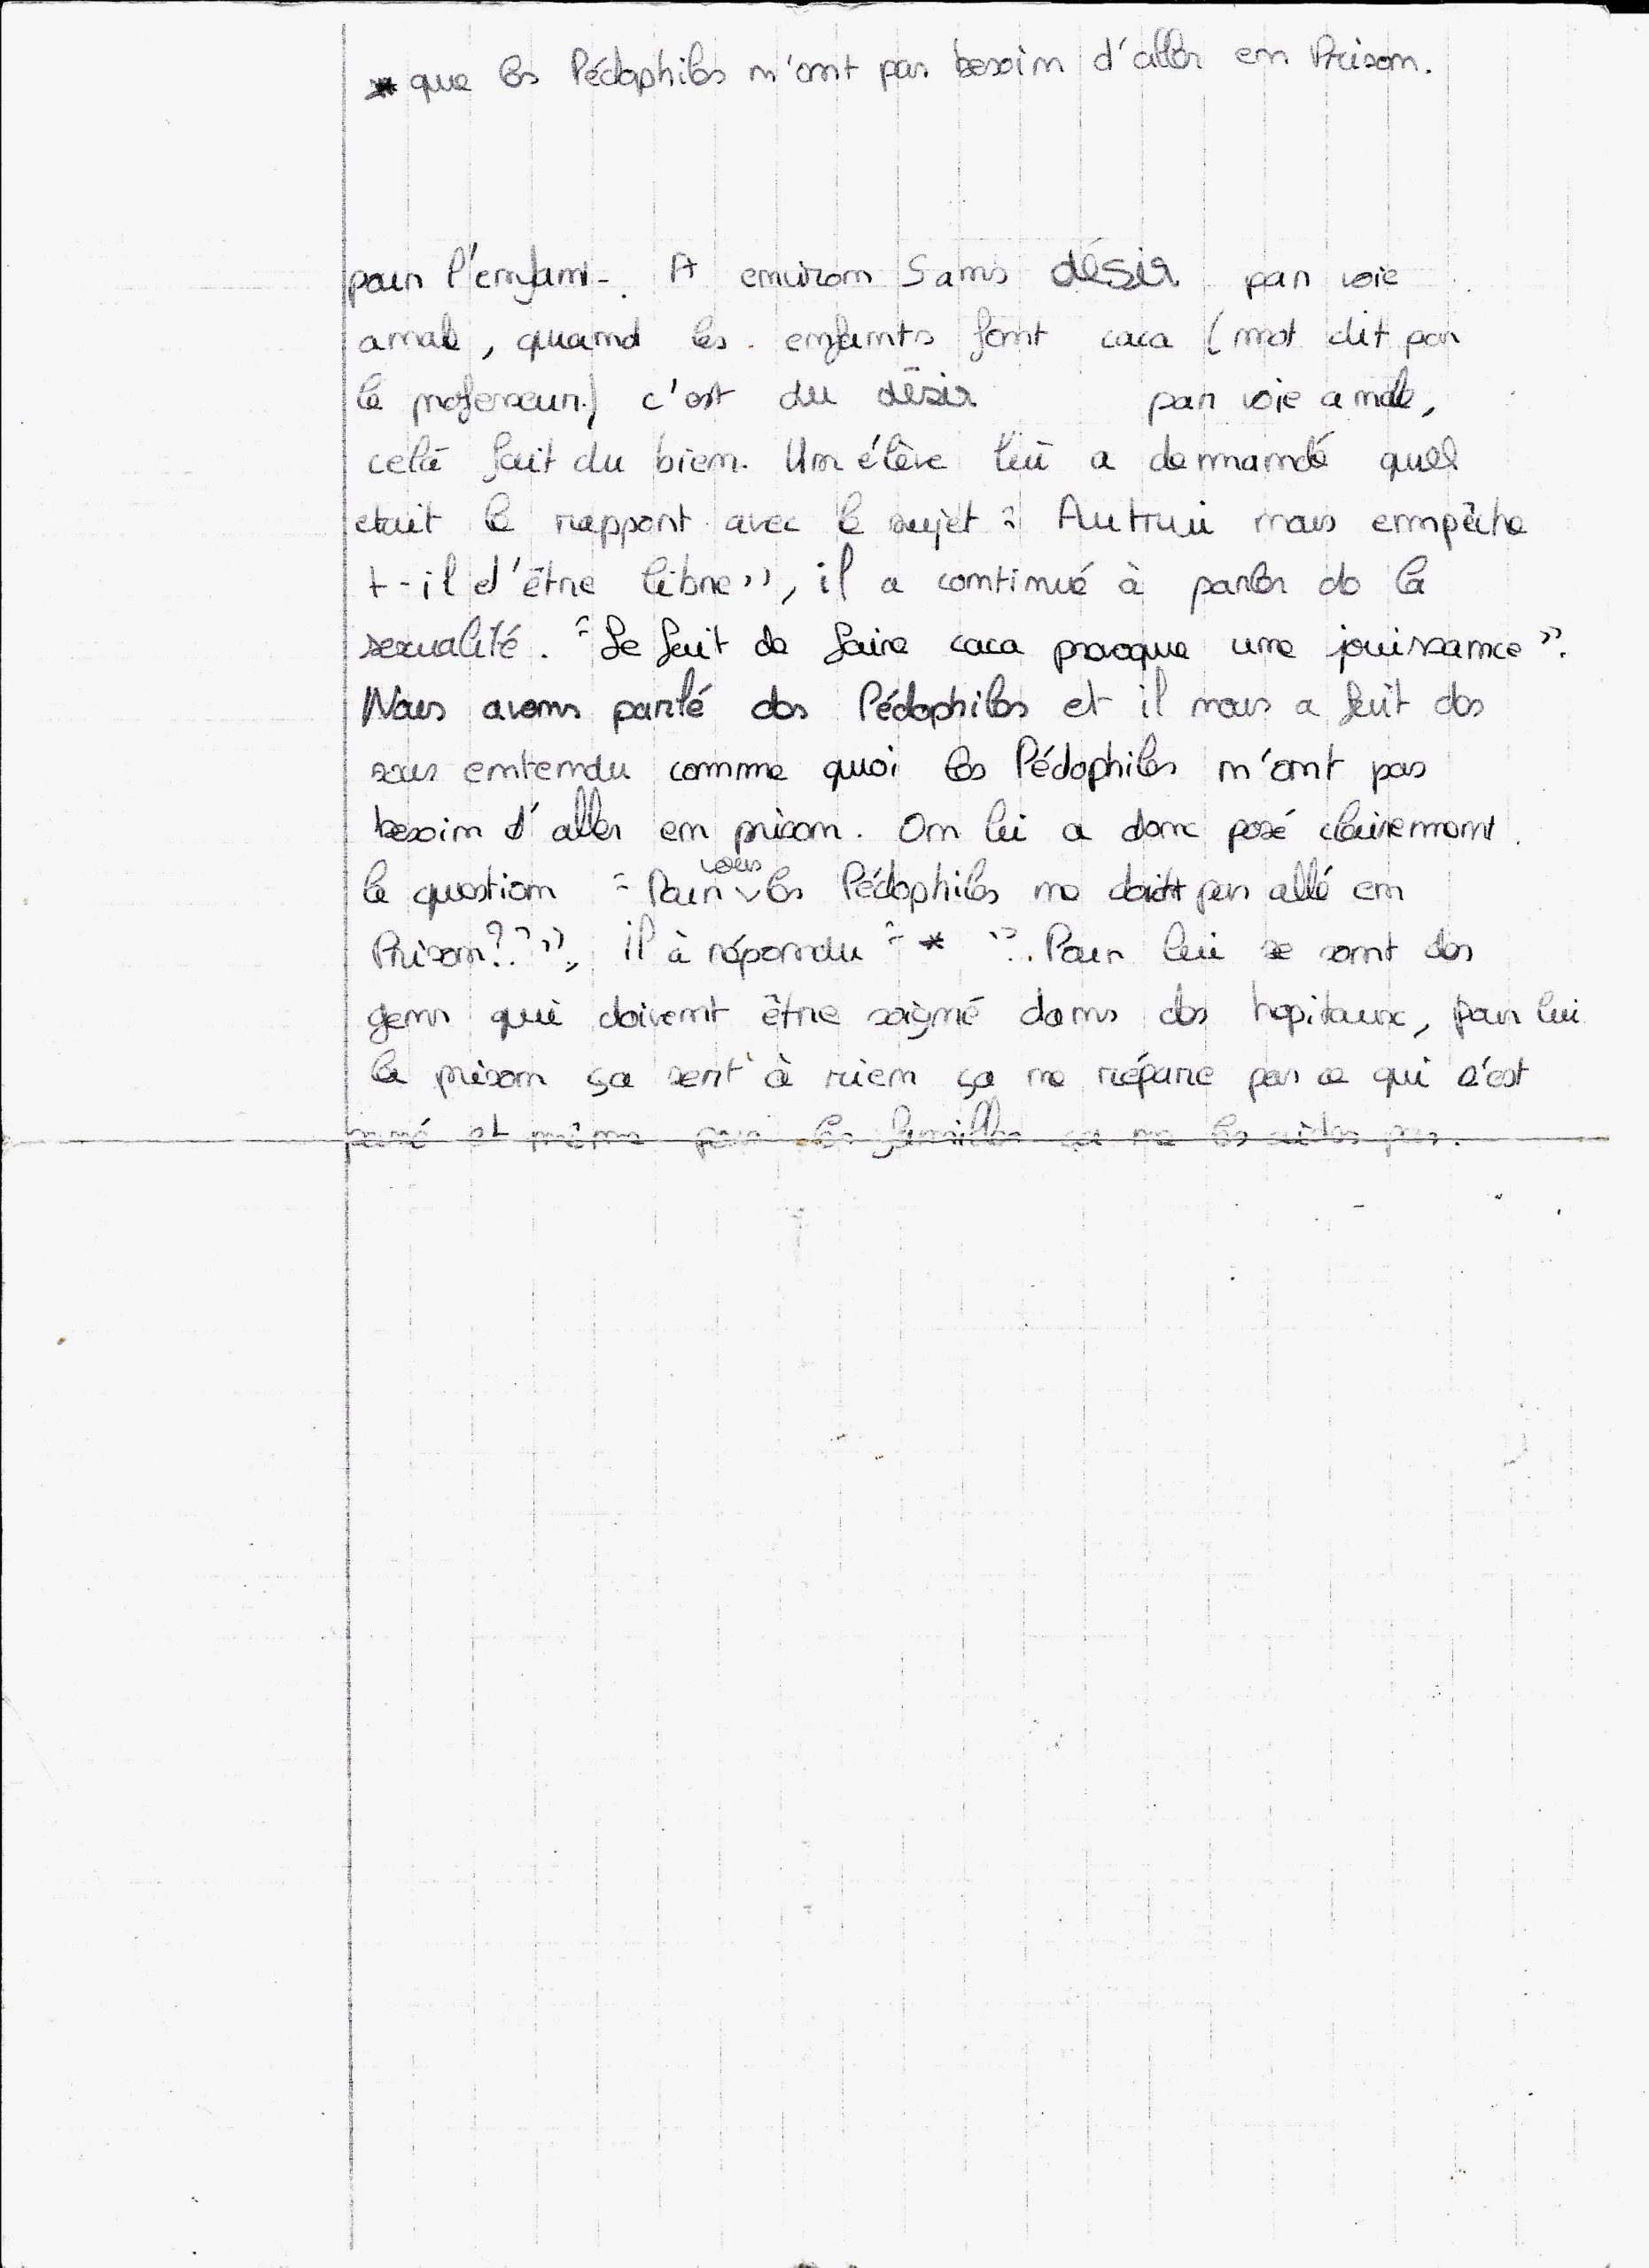 * que les Pédophiles n'ont pas besoin d'aller en Prison.
pour l'enfant. A environ 5 ans désir par voie
anale, quand les enfants font caca (mot dit par
le professeur) c'est du désir par voie anale,
celà fait du bien. Un élève lui a demmandé quel
etait le rapport avec le sujet " Autrui nous empêche
t-il d'être libre", il a continué à parler de la
sexualité. "Le fait de faire caca provoque une jouissance".
Nous avons parlé des Pédophiles et il nous a fait des
sous entendu comme quoi les Pédophiles n'ont pas
besoin d'aller en prison. On lui a donc posé clairement
la question "Pour vous les Pédophiles ne doit pas allé en
Prison??", il à répondu " * ". Pour lui se sont des
gens qui doivent être soigné dans des hopitaux, pour lui
la prison ça sert à rien ça ne répare pas ce qui s'est
passé et même pour les familles ça ne les aides pas.